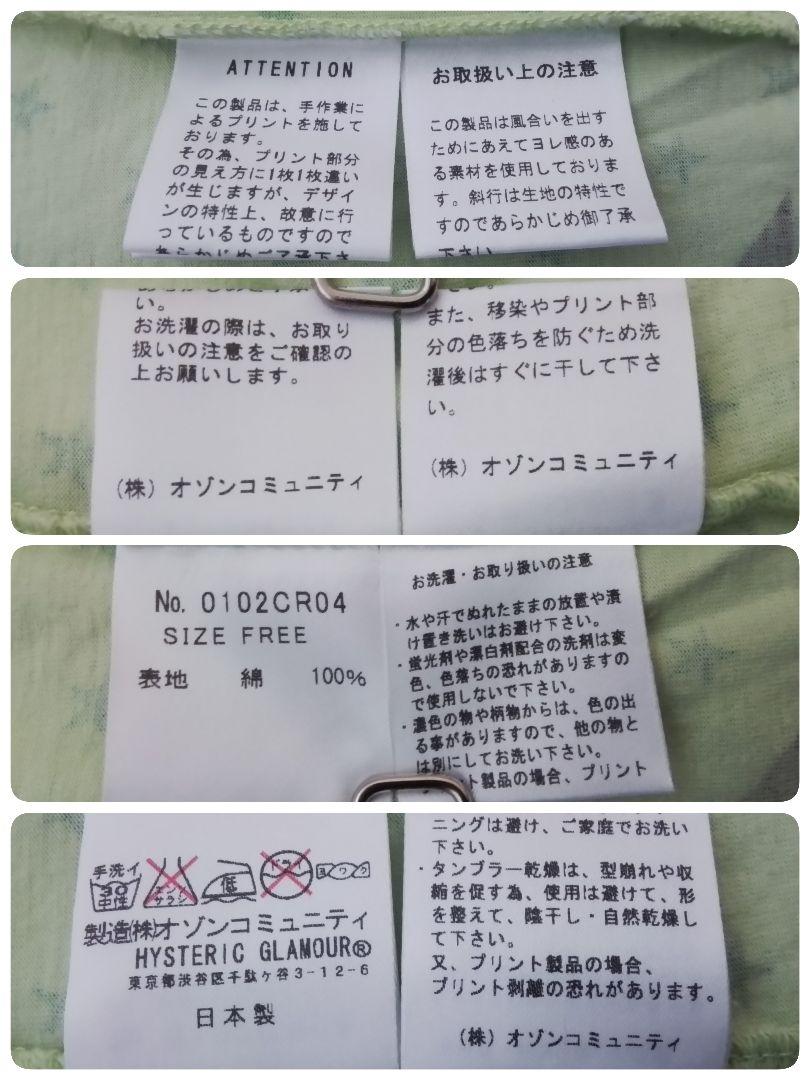 ATTENTION
この製品は、手作業に
よるプリントを施して
おります。
その為、プリント部分
の見え方に1枚1枚違い
が生じますが、デザイ
ンの特性上、故意に行
っているものですので
あらかじめご了承下さ
お取扱い上の注意
この製品は風合いを出す
ためにあえてヨレ感のあ
る素材を使用しておりま
す。斜行は生地の特性で
すのであらかじめ御了承
下さい
い。
お洗濯の際は、お取り
扱いの注意をご確認の
上お願いします。
(株) オゾンコミュニティ
また、移染やプリント部
分の色落ちを防ぐため洗
濯後はすぐに干して下さ
い。
(株) オゾンコミュニティ
No. 0102CR04
SIZE FREE
表地 綿 100%
お洗濯・お取り扱いの注意
・水や汗でぬれたままの放置や漬
け置き洗いはお避け下さい。
・蛍光剤や漂白剤配合の洗剤は変
色、色落ちの恐れがありますの
で使用しないで下さい。
・濃色の物や柄物からは、色の出
る事がありますので、他の物と
は別にしてお洗い下さい。
ト製品の場合、プリント
手洗イ
30
中性
エンソ
サラシ
低
ドライ
ヨワク
製造(株)オゾンコミュニティ
HYSTERIC GLAMOUR®
東京都渋谷区千駄ヶ谷3-12-6
日本製
ニングは避け、ご家庭でお洗い
下さい。
・タンブラー乾燥は、型崩れや収
縮を促す為、使用は避けて、形
を整えて、陰干し・自然乾燥し
て下さい。
又、プリント製品の場合、
プリント剥離の恐れがあります。
(株) オゾンコミュニティ